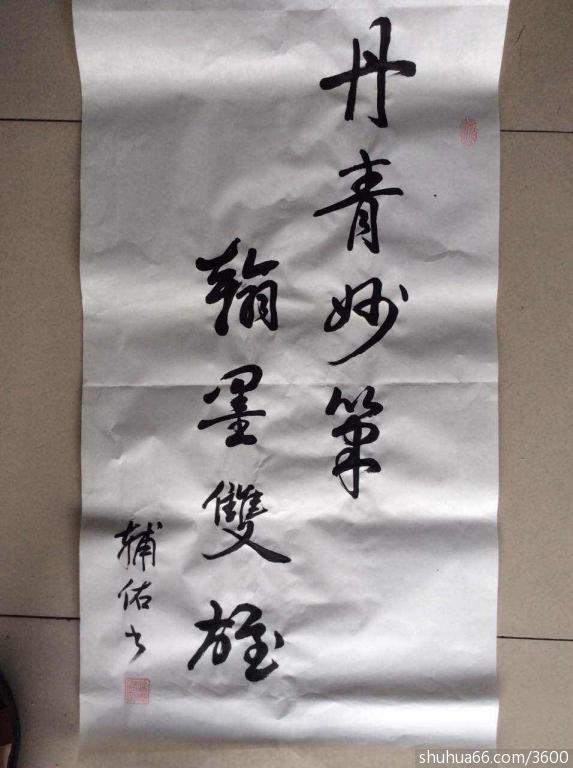 丹青妙筆
翰墨雙雄
輔佑书
shuhua66.com/3600